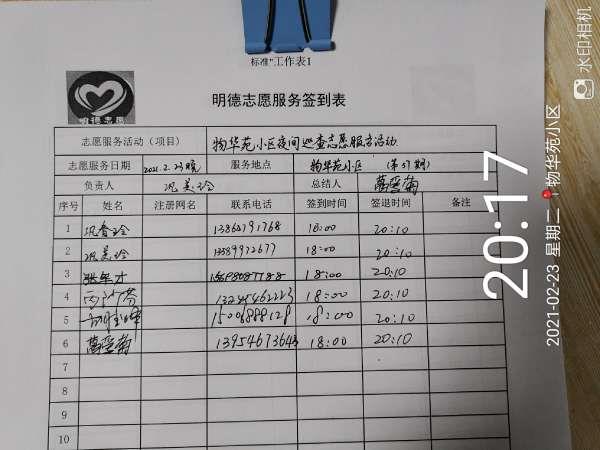 标准"工作表1
明德志愿
明德志愿服务签到表
志愿服务活动（项目） 物华苑小区夜间巡查志愿服务活动
志愿服务日期 2021.2.23晚 服务地点 物华苑小区 (第57期)
负责人 巩美玲 总结人
序号 姓名 注册网名 联系电话 签到时间 签退时间 备注
1 巩春玲 13862791768 18:00 20:10
2 巩美玲 13589972677 18:00 20:10
3 18:00 20:10
4 18:00 20:10
5 18:00 20:10
6 13954673643 18:00 20:10
7
8
9
10
20:17
2021-02-23 星期二 物华苑小区
水印相机